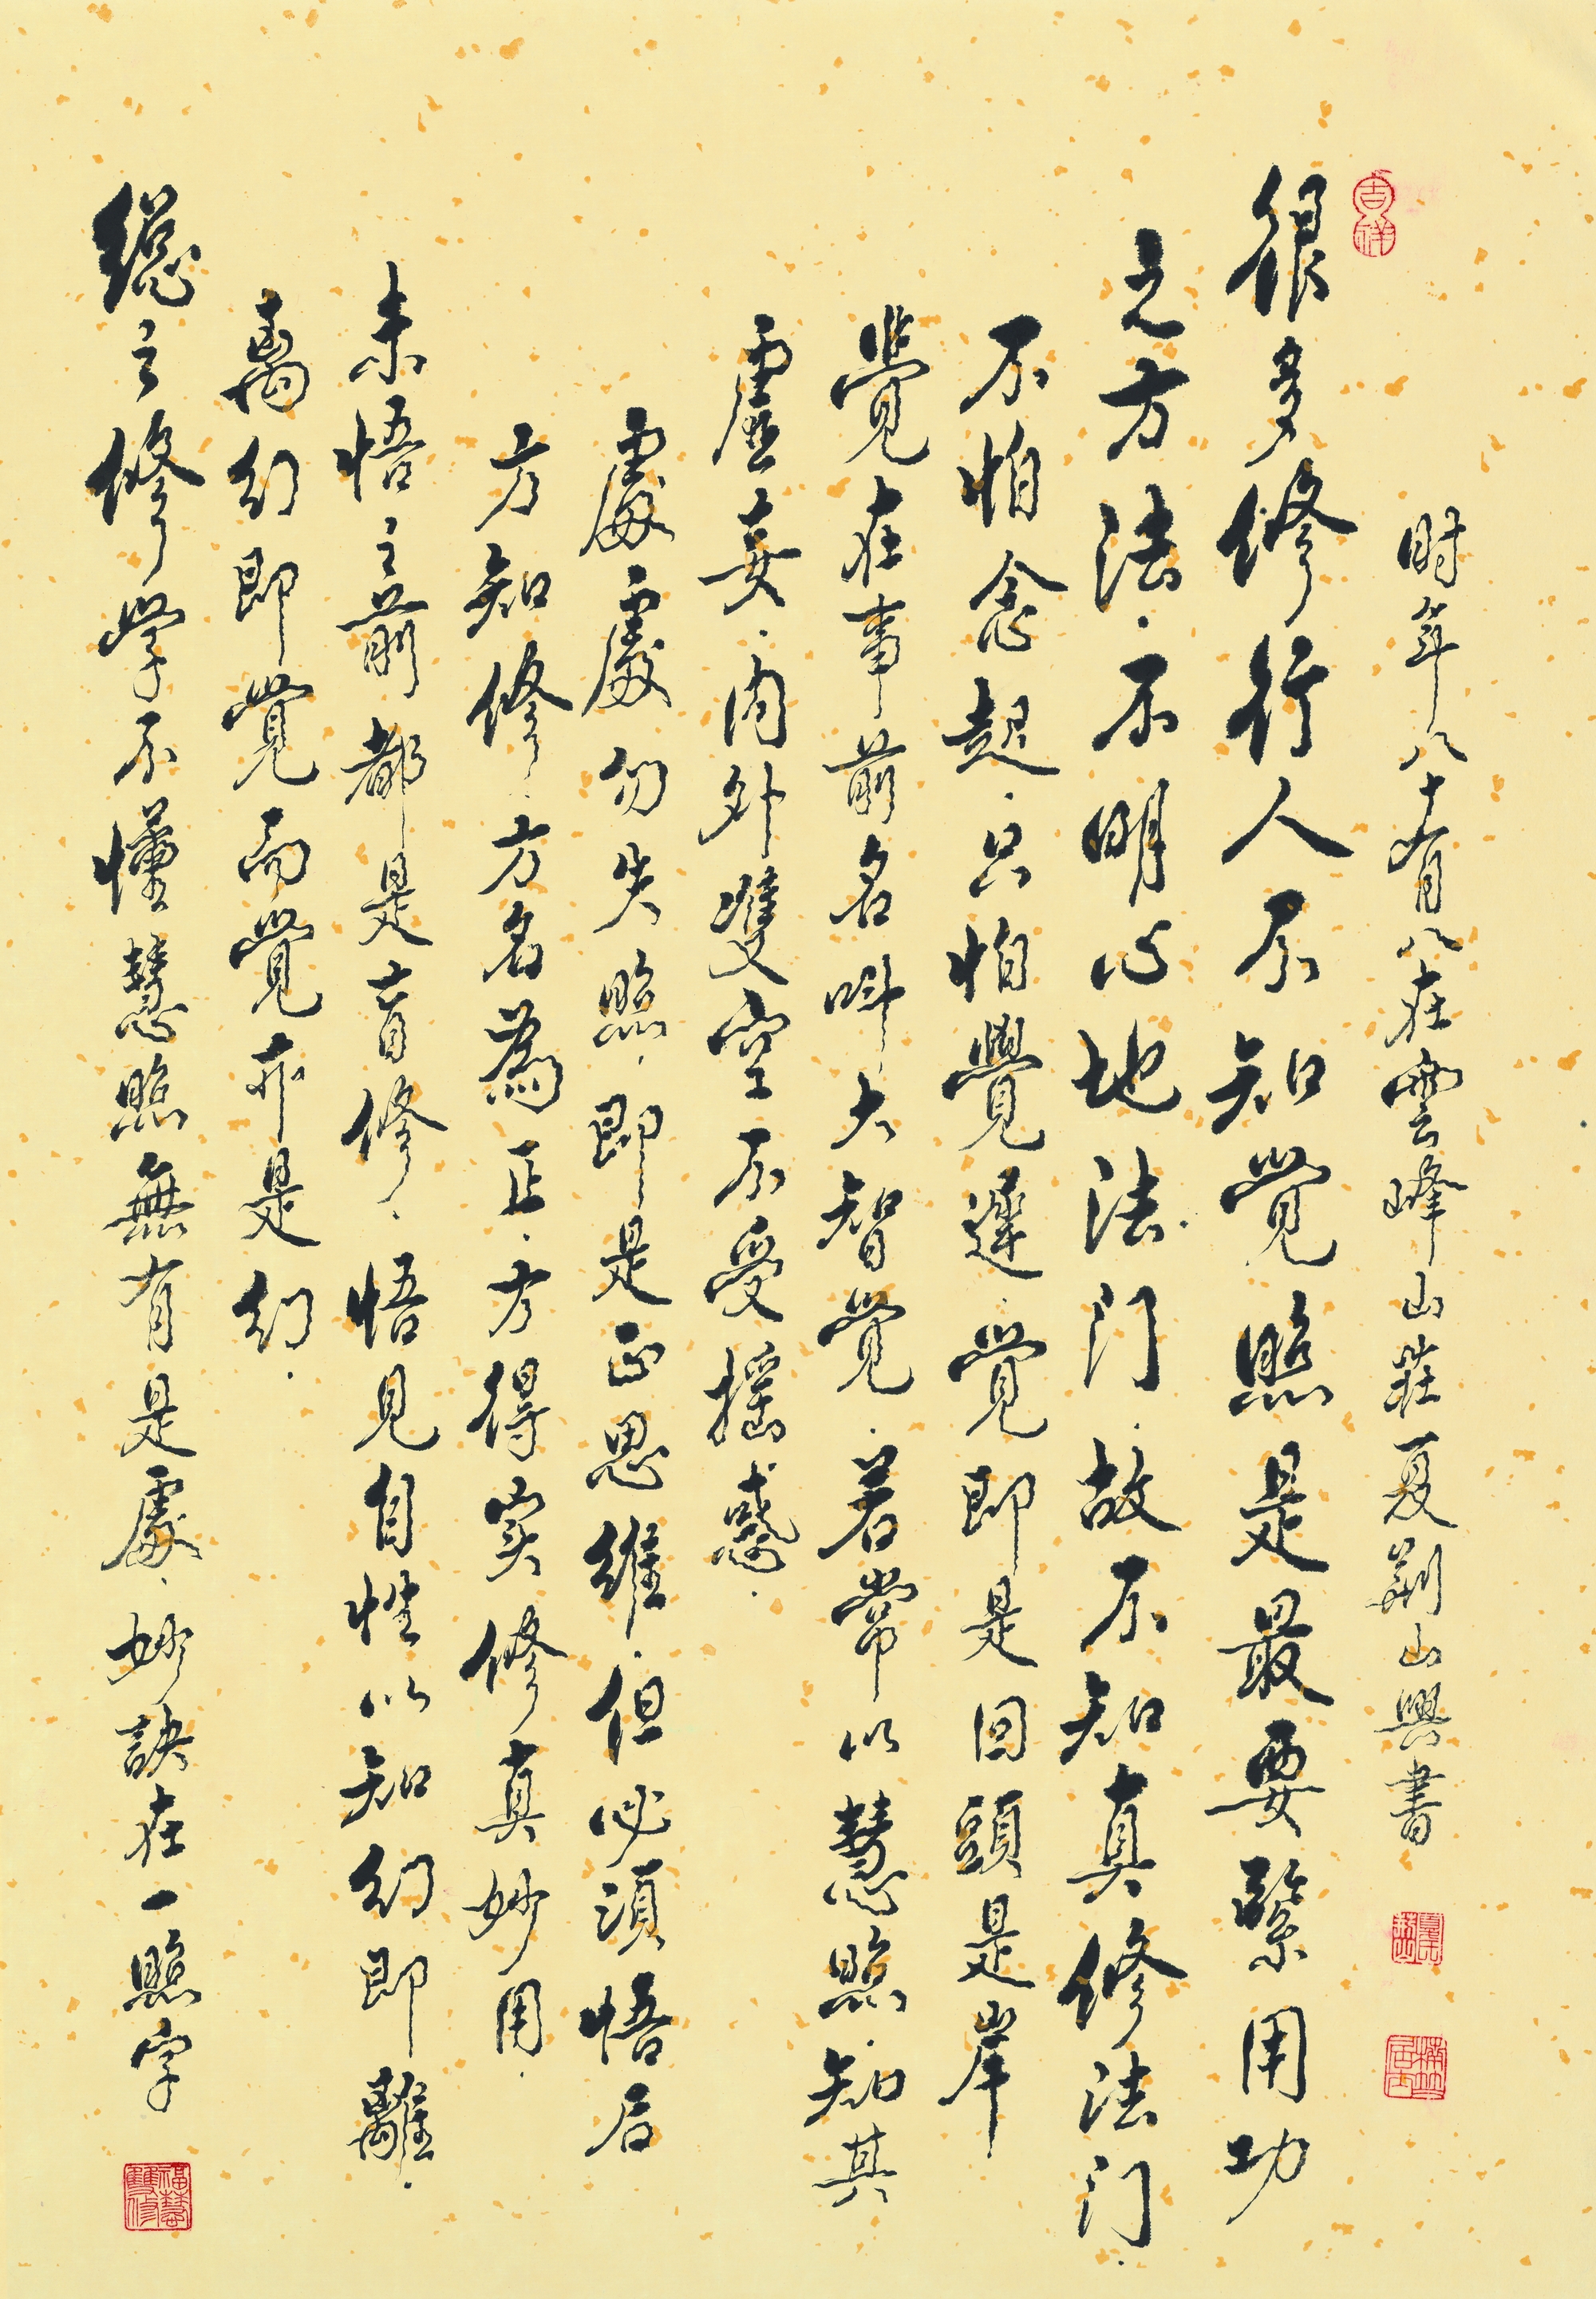 吉祥
时年八十有八在雲峰山莊夏荆山興書
很多修行人不知觉照是最要緊用功
之方法.不明心地法门.故不知真修法门.
不怕念起.只怕覺遲.觉即是回頭是岸
觉在事前名叫大智觉.若常以慧照.知其
虛妄.内外雙空不受摇惑.
處處勿失照.即是正思維.但必須悟后
方知修.方名為正.方得实修真妙用.
未悟之前都是盲修.悟見自性以知幻即離.
离幻即觉而觉亦是幻.
總之修学不懂慧照無有是處.妙訣在一照字
福慧雙修